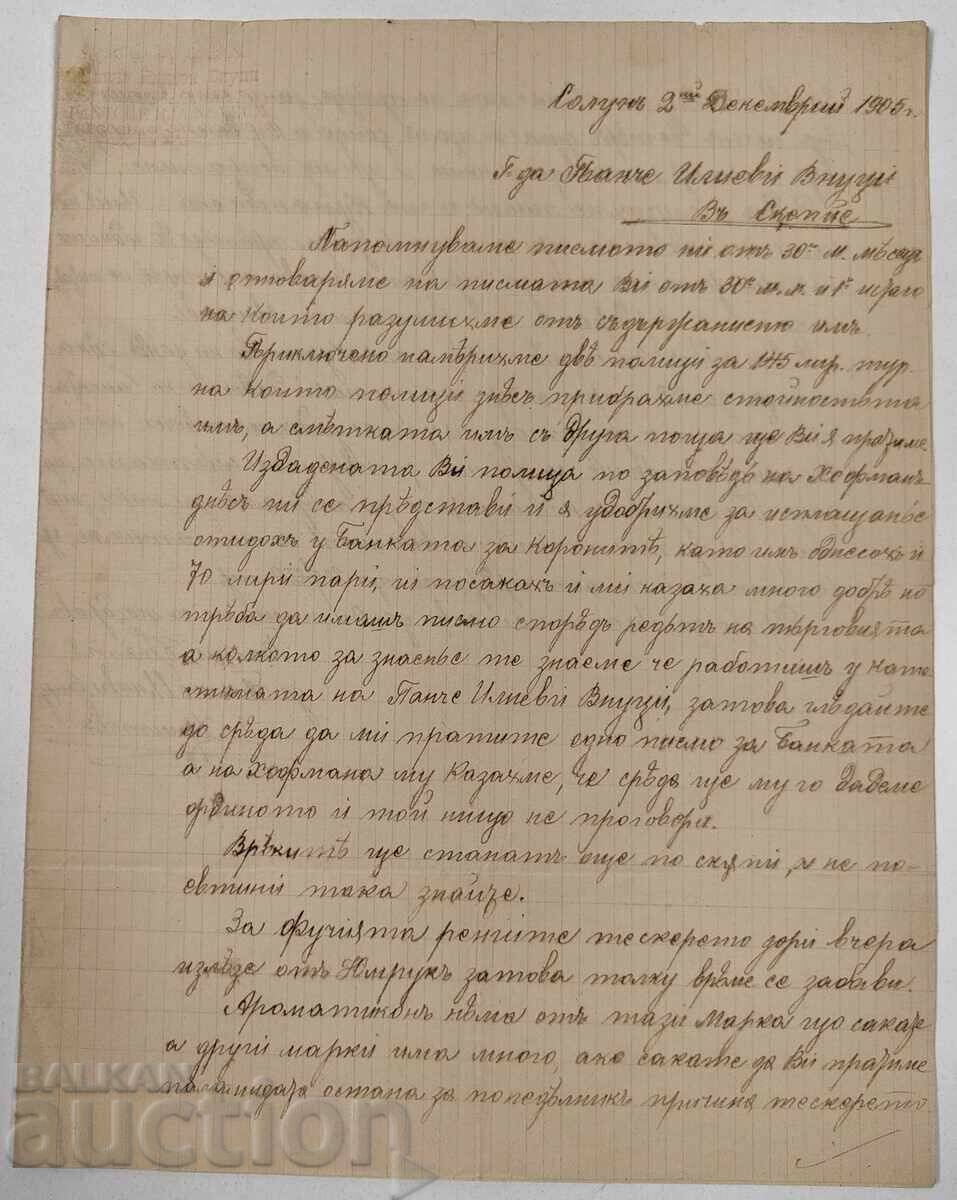 Солунъ 2ий Декемврий 1905 г.
Г-да Панче Илиеви Внуци
Въ Скопие
Напомнуваме писмото ни отъ 30 м. мѣсец
и отговаряме на писмата Ви отъ 30 м.м. и 1
на които разулихме отъ съдържанието имъ.
Приключено намѣрихме двѣ полици за 145 лир. тур.
на които полици днѣсъ прибрахме стойностьта
имъ, а смѣтката имъ съ друга поща ще Ви я пратиме
Издадената Ви полица по заповѣдь на Хофманъ
днѣсъ ни се прѣдстави и я удобрихме за исплащанье
отидохъ у Банката за Коронитѣ, като имъ и
70 лири пари, и посакахъ и ми казаха много добрѣ но
трѣба да имашъ писмо спорѣдъ редътъ на търговията
а колкото за знаенье те знаеме че работишъ у като
на Панче Илиеви Внуци, затова глѣдайте
до срѣда да ми пратите едно писмо за Банката
а на Хофмана му казахме, че срѣда ще му го дадеме
и той нищо не проговори.
Врѣкитѣ ще станатъ още по скъпи, и не по-
евтини така знайте.
За фучията ренгите тескерето дори вчера
излѣзе отъ Юмрукъ затова толку врѣме се забави.
Ароматиконъ нѣма отъ тази Марка що сакате
а други марки има много, ако сакате да Ви пратиме
паламидата остана за понедѣлникъ причина тескерето.
BALKAN
auction